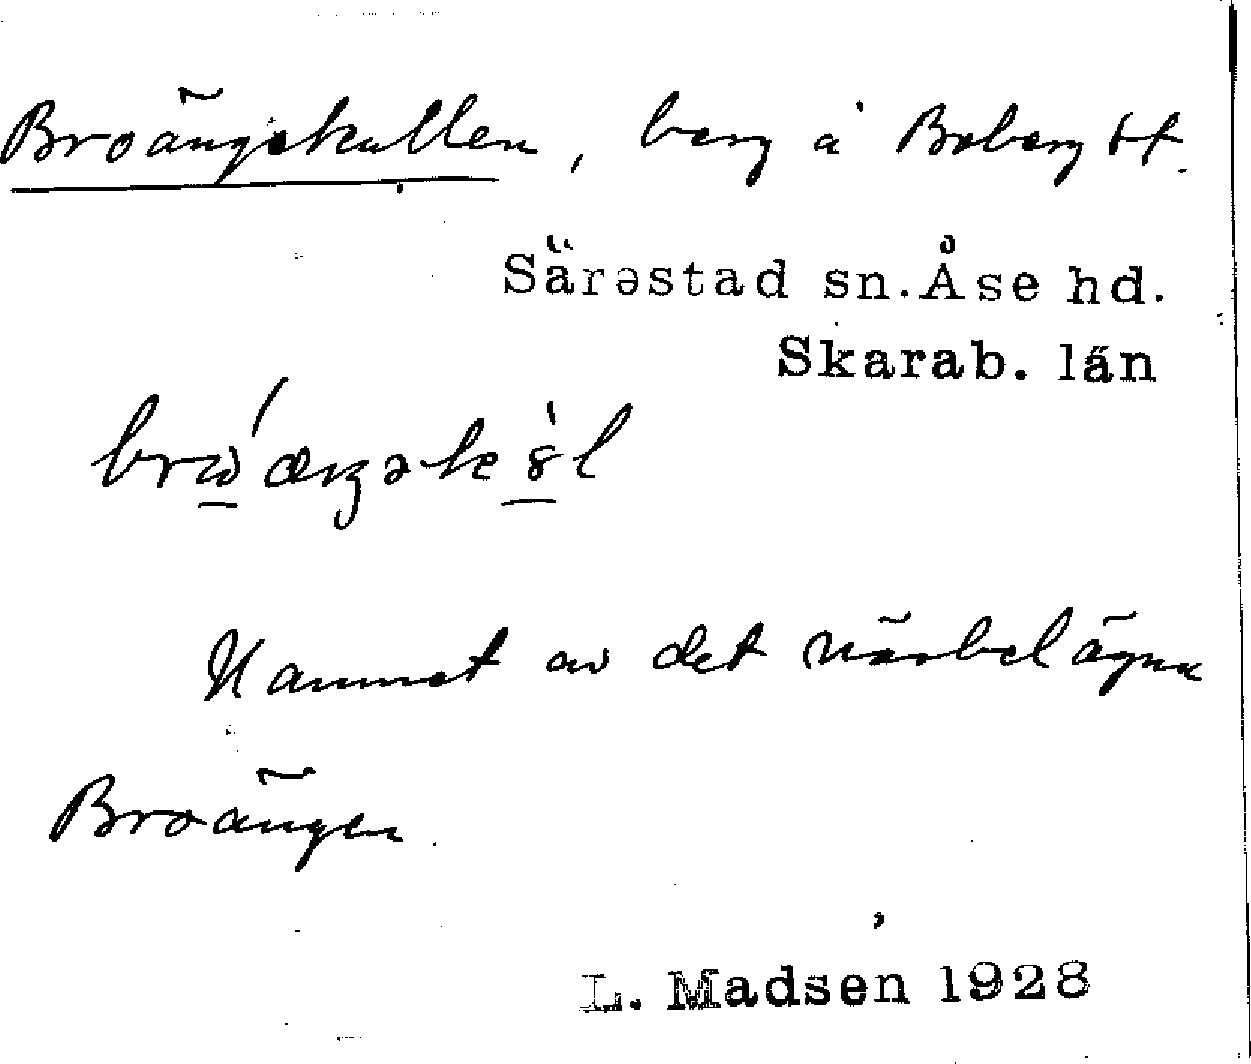 Broängskullen, berg å Broberg tt.
Särəstad sn. Åse hd.
Skarab. län
Namnet av det närbelägna
Broängen.
L. Madsen 1928